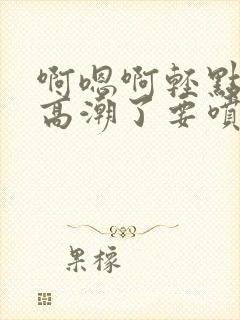 啊嗯啊輕點
高潮了要噴
果檬